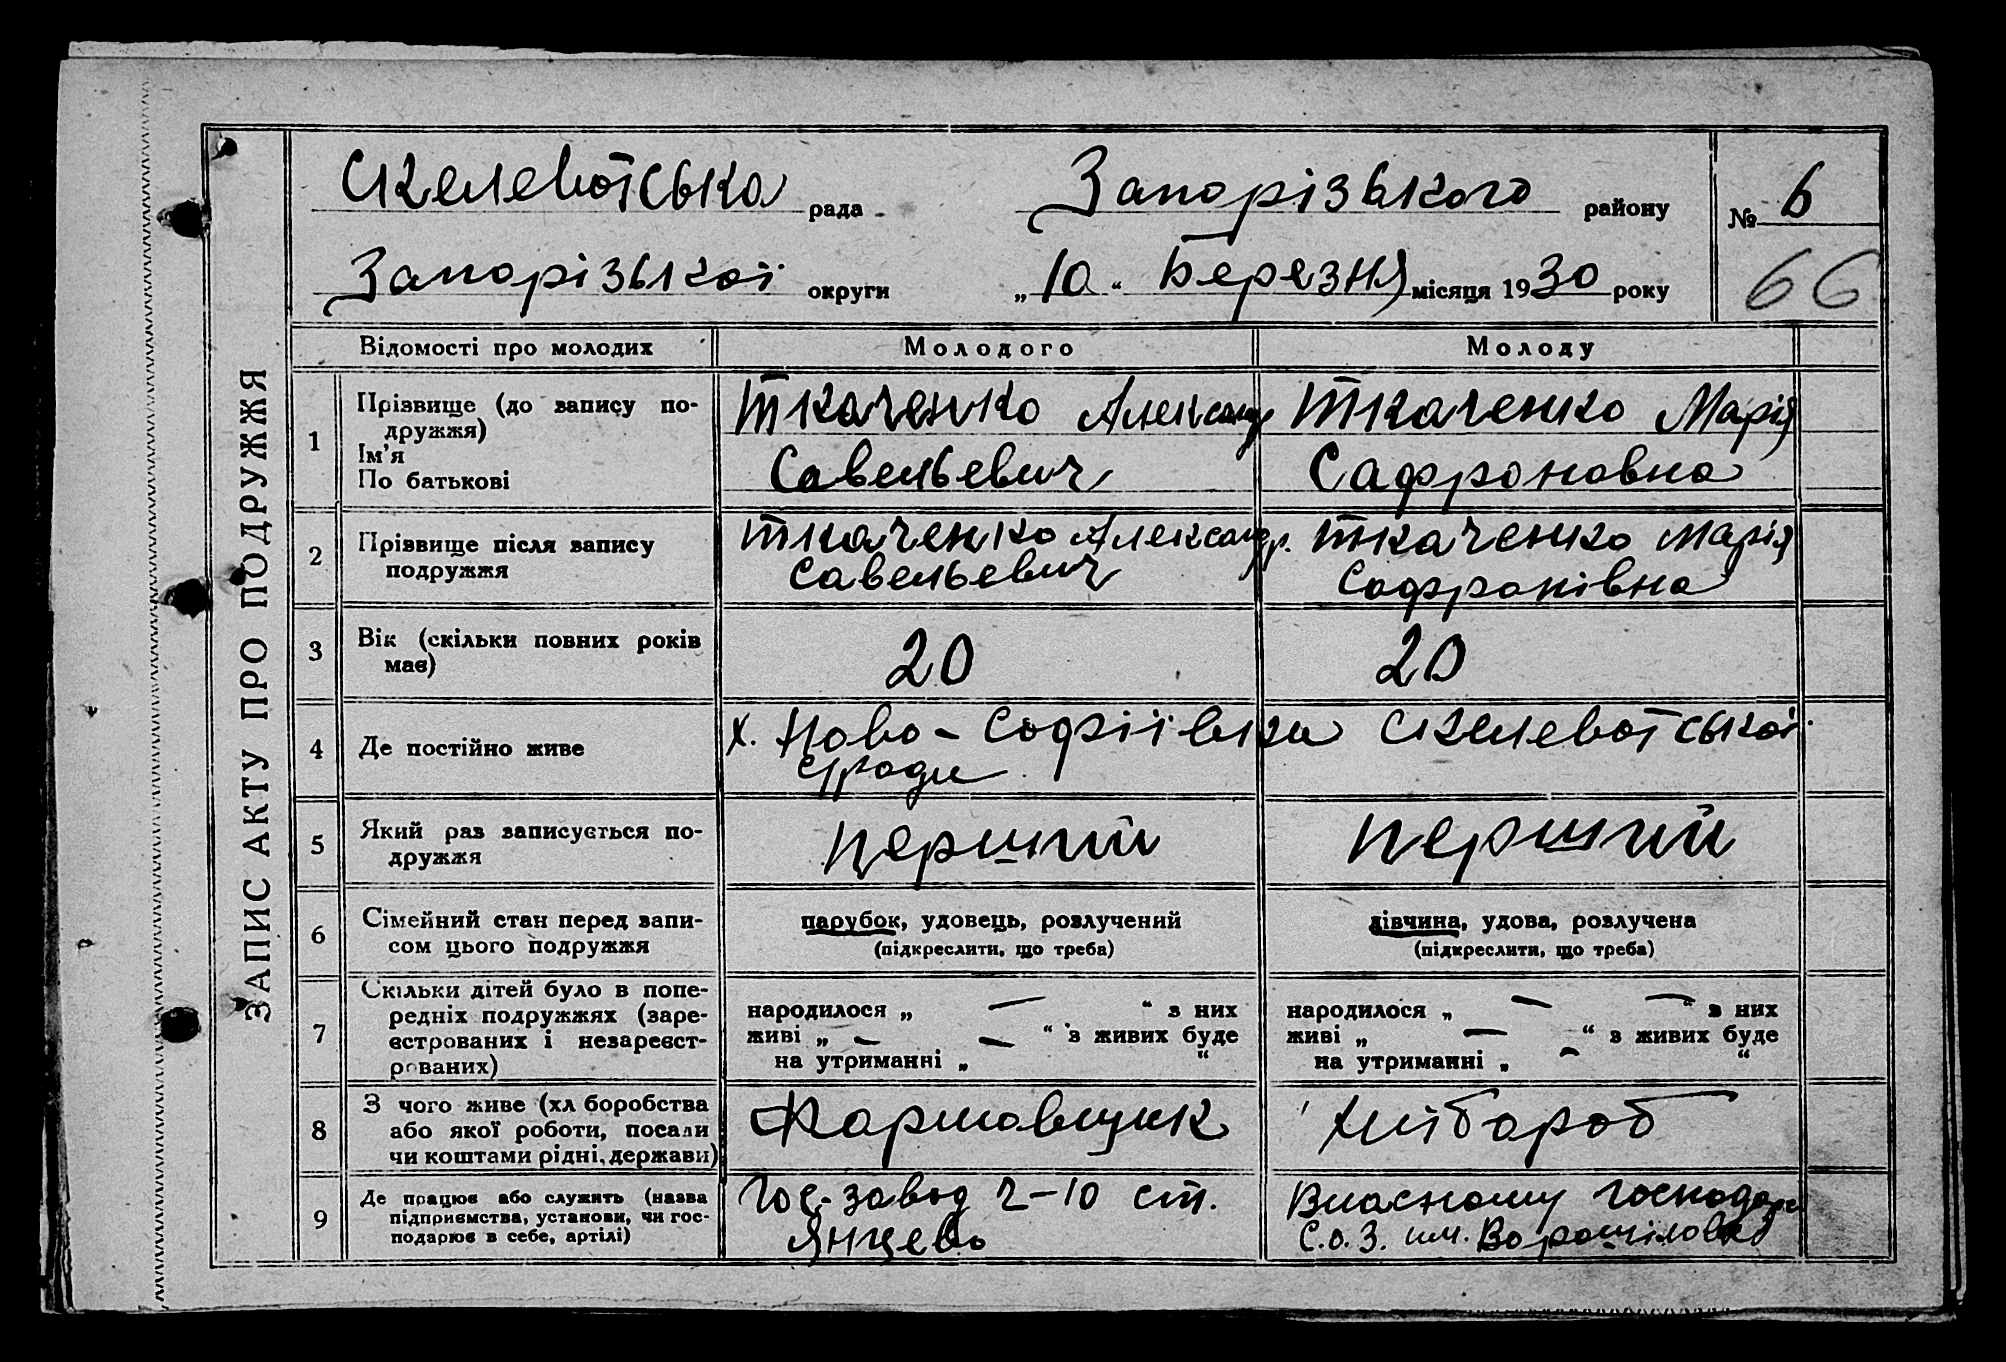 ЗАПИС АКТУ ПРО ПОДРУЖЖЯ
Скелеватська рада Запорізького району № 6
Запорізької округи „10“ Березня місяця 1930 року 66
Відомості про молодих Молодого Молоду
1 Прізвище (до запису по-
дружжя)
Ім'я
По батькові
Ткаченко Александр
Савельевич
Ткаченко Марія
Сафроновна
2 Прізвище після запису
подружжя
Ткаченко Александр.
Савельевич
Ткаченко Марія
Софронівна
3 Вік (скільки повних років
має)
20
20
4 Де постійно живе
х. Ново-Софіївка Скелеватської
с/ради
5 Який раз записується по-
дружжя
перший
перший
6 Сімейний стан перед запи-
сом цього подружжя
парубок, удовець, розлучений
(підкреслити, що треба)
дівчина, удова, розлучена
(підкреслити, що треба)
7 Скільки дітей було в попе-
редніх подружжях (заре-
єстрованих і незареєст-
рованих)
народилося „ — “ з них
живі „ — — “ з живих буде
на утриманні „ “
народилося „ — — “ з них
живі „ — “ з живих буде
на утриманні „ — “
8 З чого живе (хліборобства
або якої роботи, посади
чи коштами рідні, держави)
Формовщик
Хлібороб
9 Де працює або служить (назва
підприємства, установи, чи гос-
подарює в себе, артілі)
Гос. завод 2-10 ст.
Янцево
Власному господар
С.о.З. им. Ворошілова